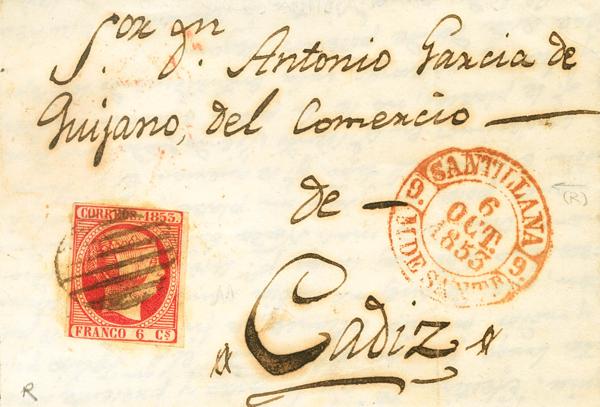 S.or Dn. Antonio Garcia de
Guijano, del Comercio —
de —
Cadiz
CORREOS 1853.
FRANCO 6 Cs
SANTILLANA
6
OCT.
1853
6
6
M. DE SANTR
(R)
R